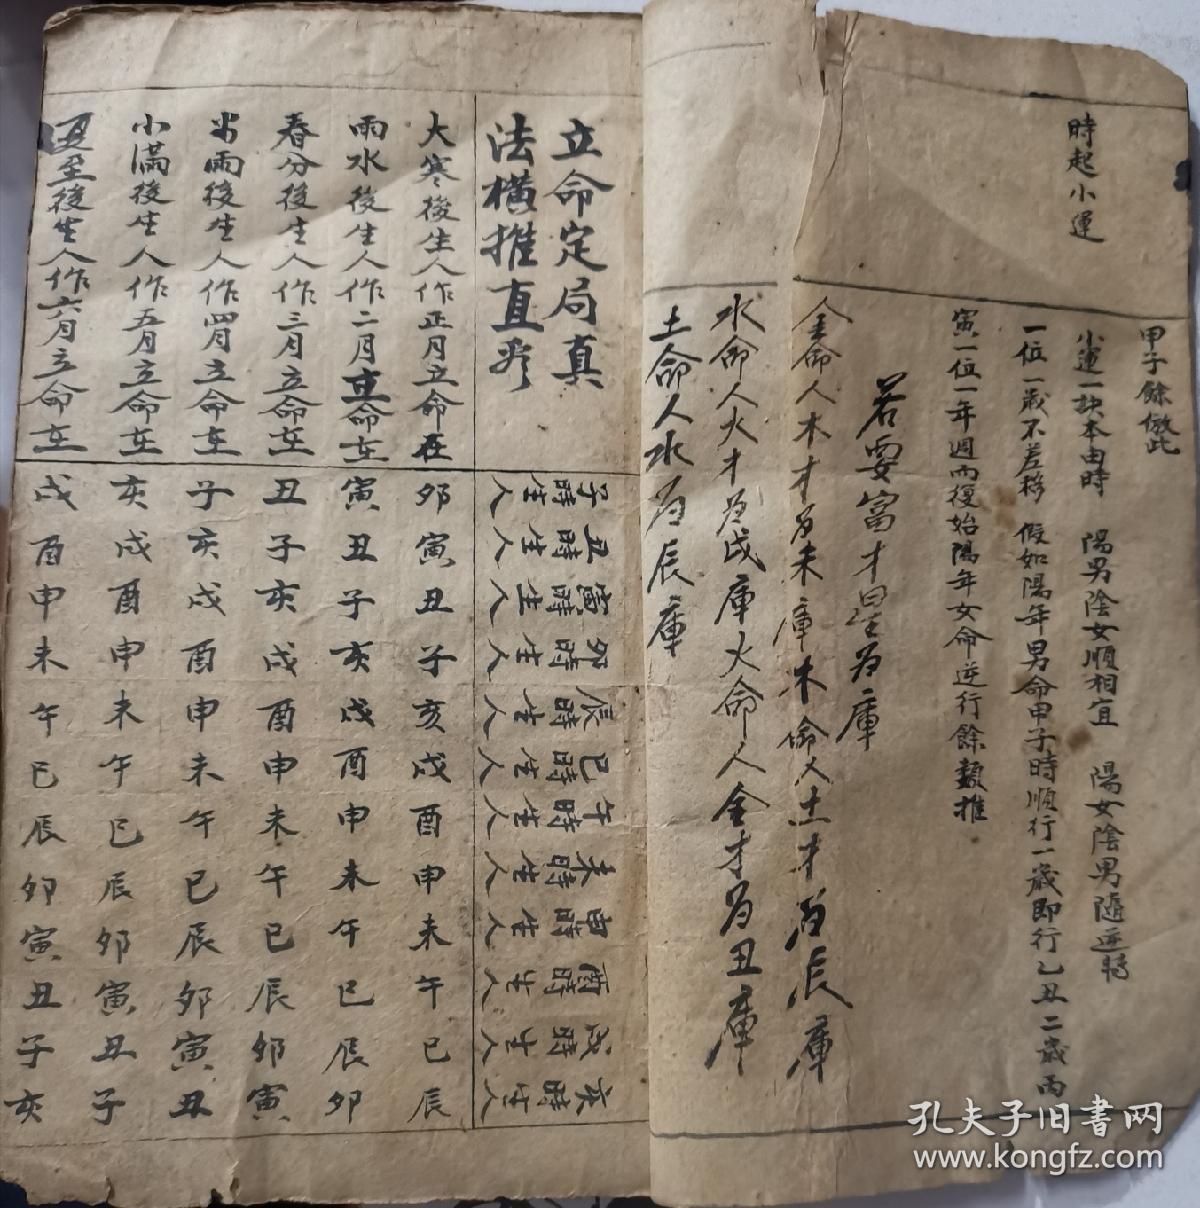 時起小運
甲子餘倣此
小運一訣本由時　陽男陰女順相宜　陽女陰男隨逆轉
一位一歲不差移　假如陽年男命甲子時順行一歲即行乙丑二歲丙
寅一位一年週而復始陽年女命逆行餘類推
若要富才星為庫
金命人木才為未庫木命人土才為辰庫
水命人火才為戌庫火命人金才為丑庫
土命人水為辰庫
立命定局真
法橫推直看
子時生人
丑時生人
寅時生人
卯時生人
辰時生人
巳時生人
午時生人
未時生人
申時生人
酉時生人
戌時生人
亥時生人
大寒後生人作正月立命在　卯寅丑子亥戌酉申未午巳辰
雨水後生人作二月立命在　寅丑子亥戌酉申未午巳辰卯
春分後生人作三月立命在　丑子亥戌酉申未午巳辰卯寅
谷雨後生人作四月立命在　子亥戌酉申未午巳辰卯寅丑
小滿後生人作五月立命在　亥戌酉申未午巳辰卯寅丑子
夏至後生人作六月立命在　戌酉申未午巳辰卯寅丑子亥
孔夫子旧书网
www.kongfz.com